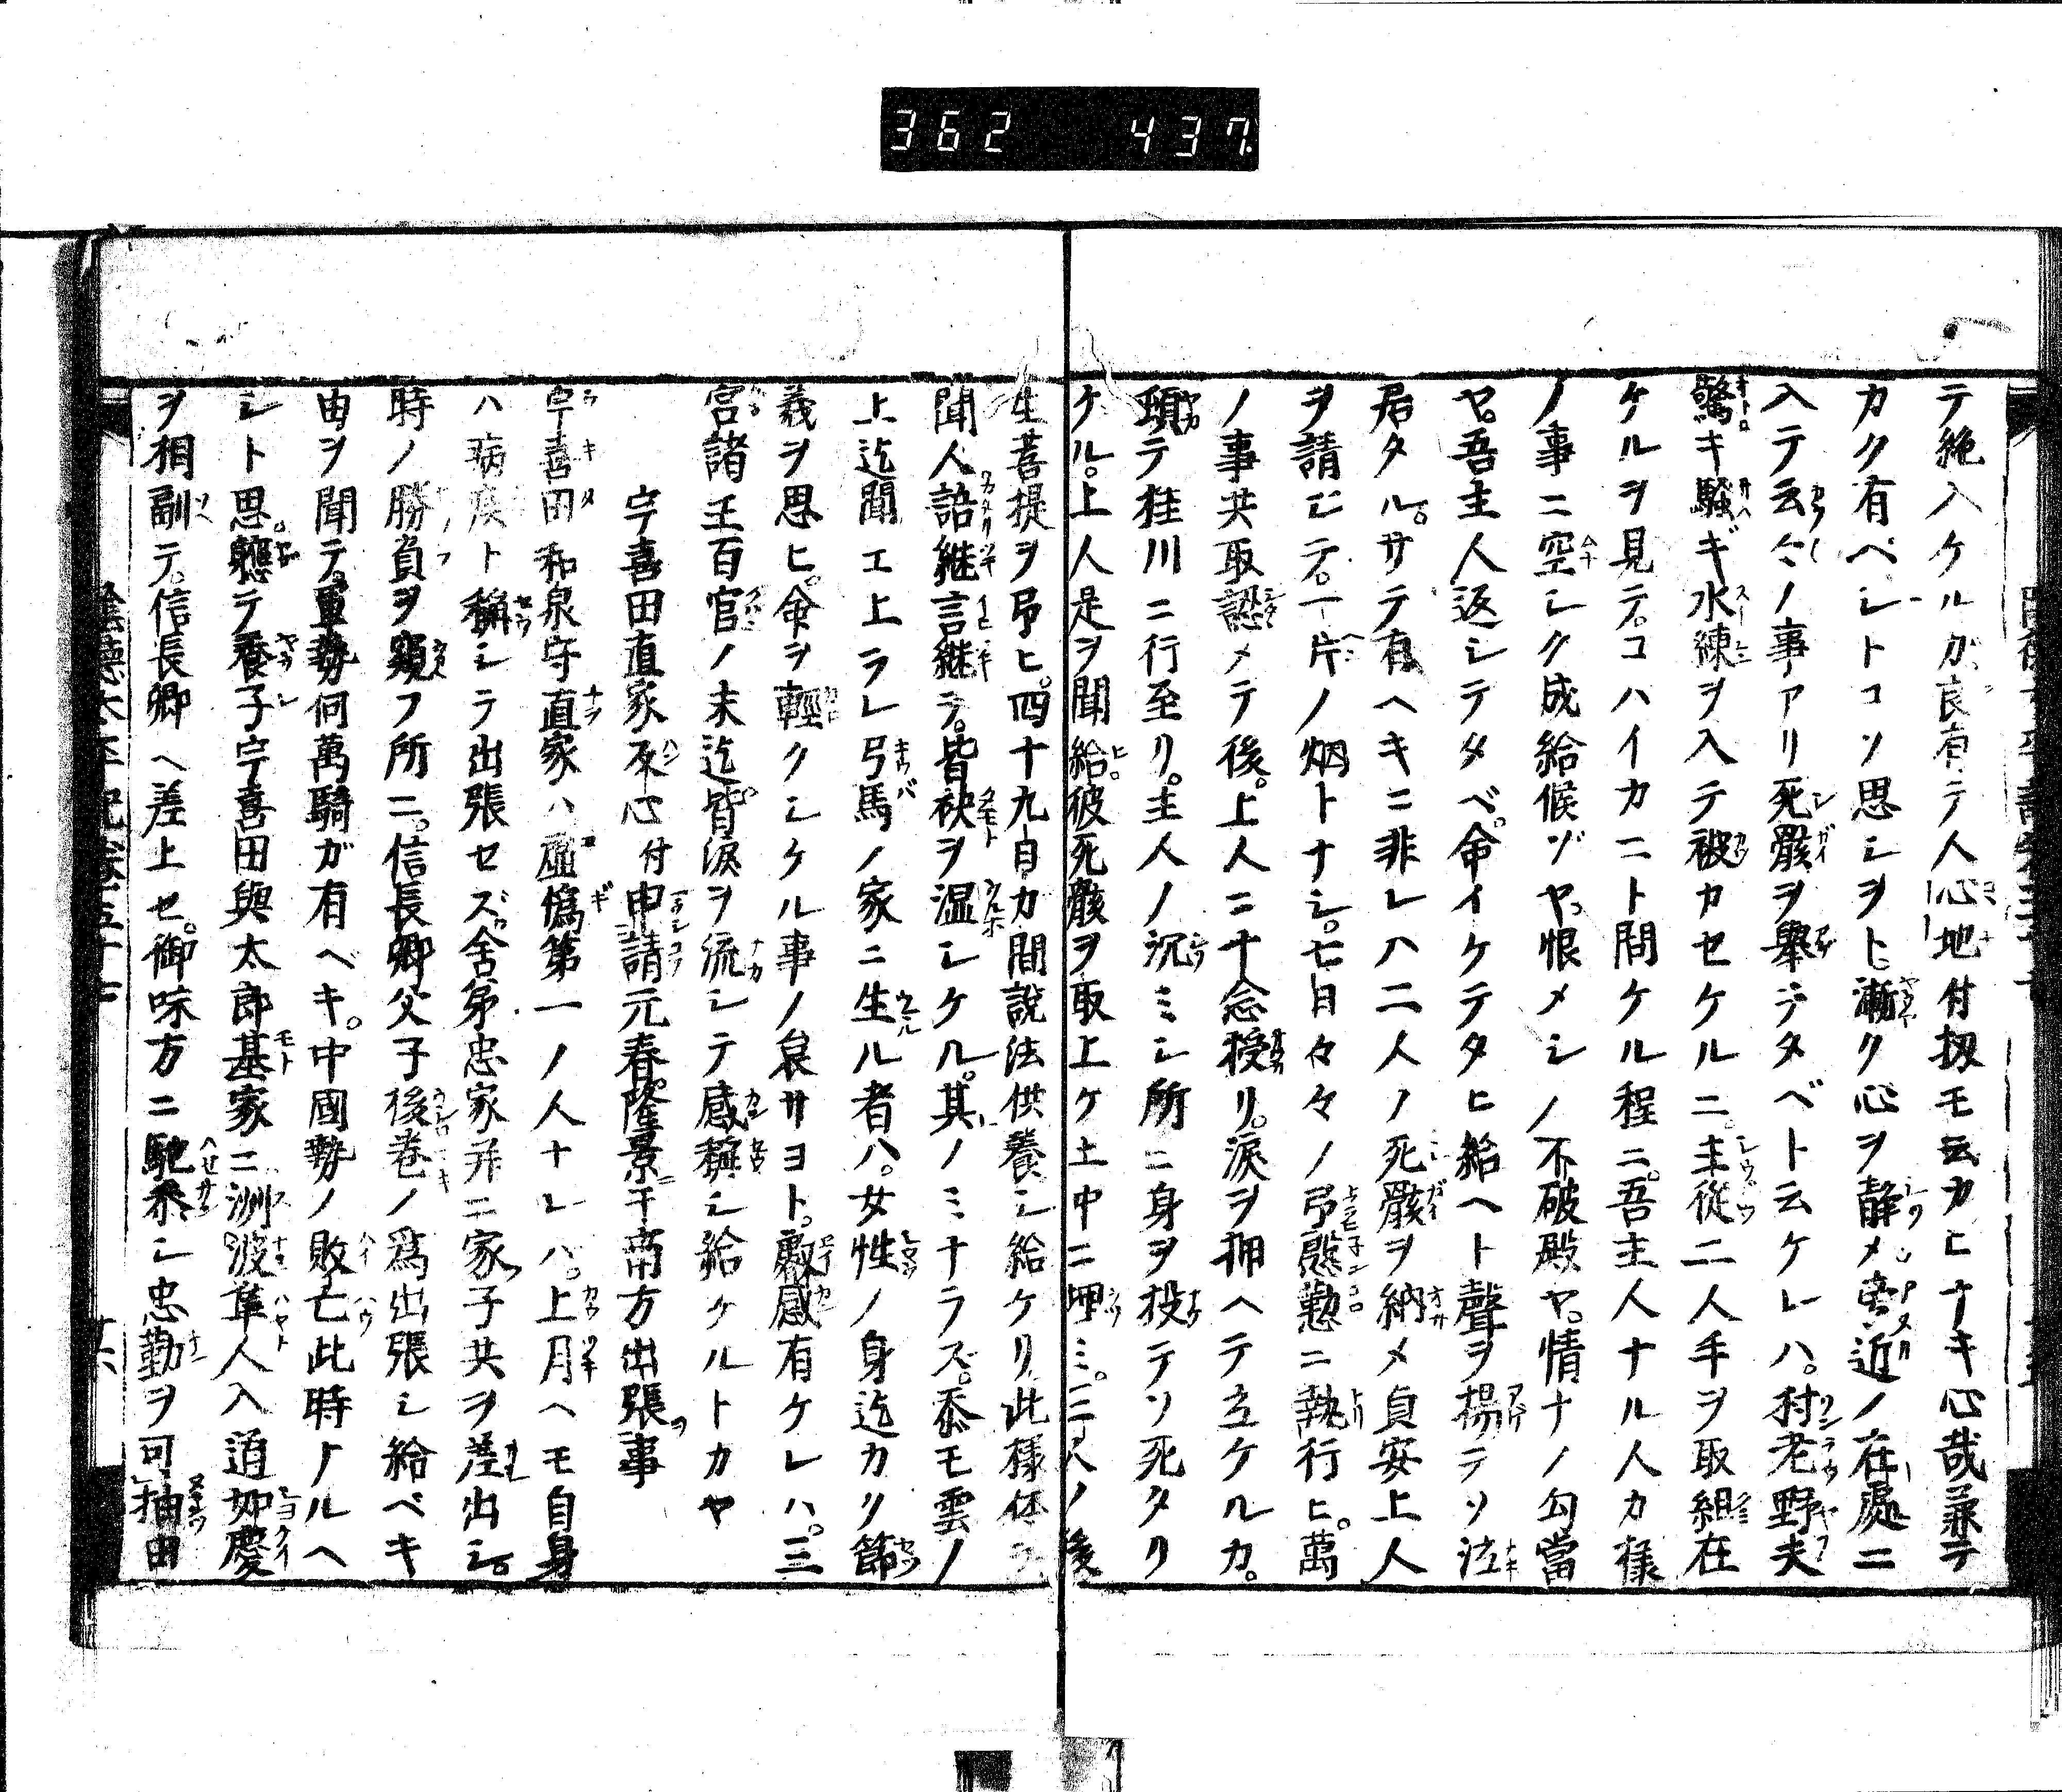 362 437
テ絶入ケルガ良有テ人心地付扨モ云カヒナキ心哉兼テ
カク有ベシトコソ思シヲト漸ク心ヲ靜メ旁近ノ在處ニ
入テ云々ノ事アリ死骸ヲ擧テタベト云ケレハ。村老野夫
驚キ騷ギ水練ヲ入テ被カセケルニ。主從二人手ヲ取組在
ケルヲ見テ。コハイカニト問ケル程ニ。吾主人ナル人カ樣
ノ事ニ空シク成給候ゾヤ。恨メシノ不破殿ヤ。情ナノ勾當
ヤ。吾主人返シテタベ。命イケテタヒ給ヘト聲ヲ揚テソ泣
居タル。サテ有ヘキニ非レハ二人ノ死骸ヲ納メ貞安上人
ヲ請シテ。一片ノ烟トナシ。七日々々ノ弔慇懃ニ執行ヒ。萬
ノ事共取認メテ後。上人ニ十念授リ。涙ヲ押ヘテ立ケルカ。
頓テ桂川ニ行至リ。主人ノ沉ミシ所ニ身ヲ投テソ死タリ
ケル。上人是ヲ聞給ヒ。彼死骸ヲ取上ケ土中ニ埋ミ。三人ノ後
生菩提ヲ弔ヒ。四十九日カ間説法供養シ給ケリ。此樣体ヲ
聞人語繼言繼テ。皆袂ヲ濕シケル。其ノミナラズ。忝モ雲ノ
上迄聞エ上ラレ弓馬ノ家ニ生ル者ハ。女性ノ身迄カリ節
義ヲ思ヒ。命ヲ輕クシケル事ノ哀サヨト。叡感有ケレハ。三
宮諸王百官ノ末迄皆涙ヲ流シテ感稱シ給ケルトカヤ
宇喜田直家反心付申請元春隆景于兩方出張事
宇喜田和泉守直家ハ虚僞第一ノ人ナレハ。上月ヘモ自身
ハ病疾ト稱シテ出張セズ。舍弟忠家并ニ家子共ヲ差出シ。
時ノ勝負ヲ窺フ所ニ。信長卿父子後卷ノ爲出張シ給ベキ
由ヲ聞テ。軍勢何萬騎ガ有ベキ。中國勢ノ敗亡此時ナルヘ
シト思。軈テ養子宇喜田與太郎基家ニ洲波隼人入道如慶
ヲ相副テ。信長卿ヘ差上セ。御味方ニ馳參シ忠勤ヲ可抽由
陰德太平記卷五十七
十六